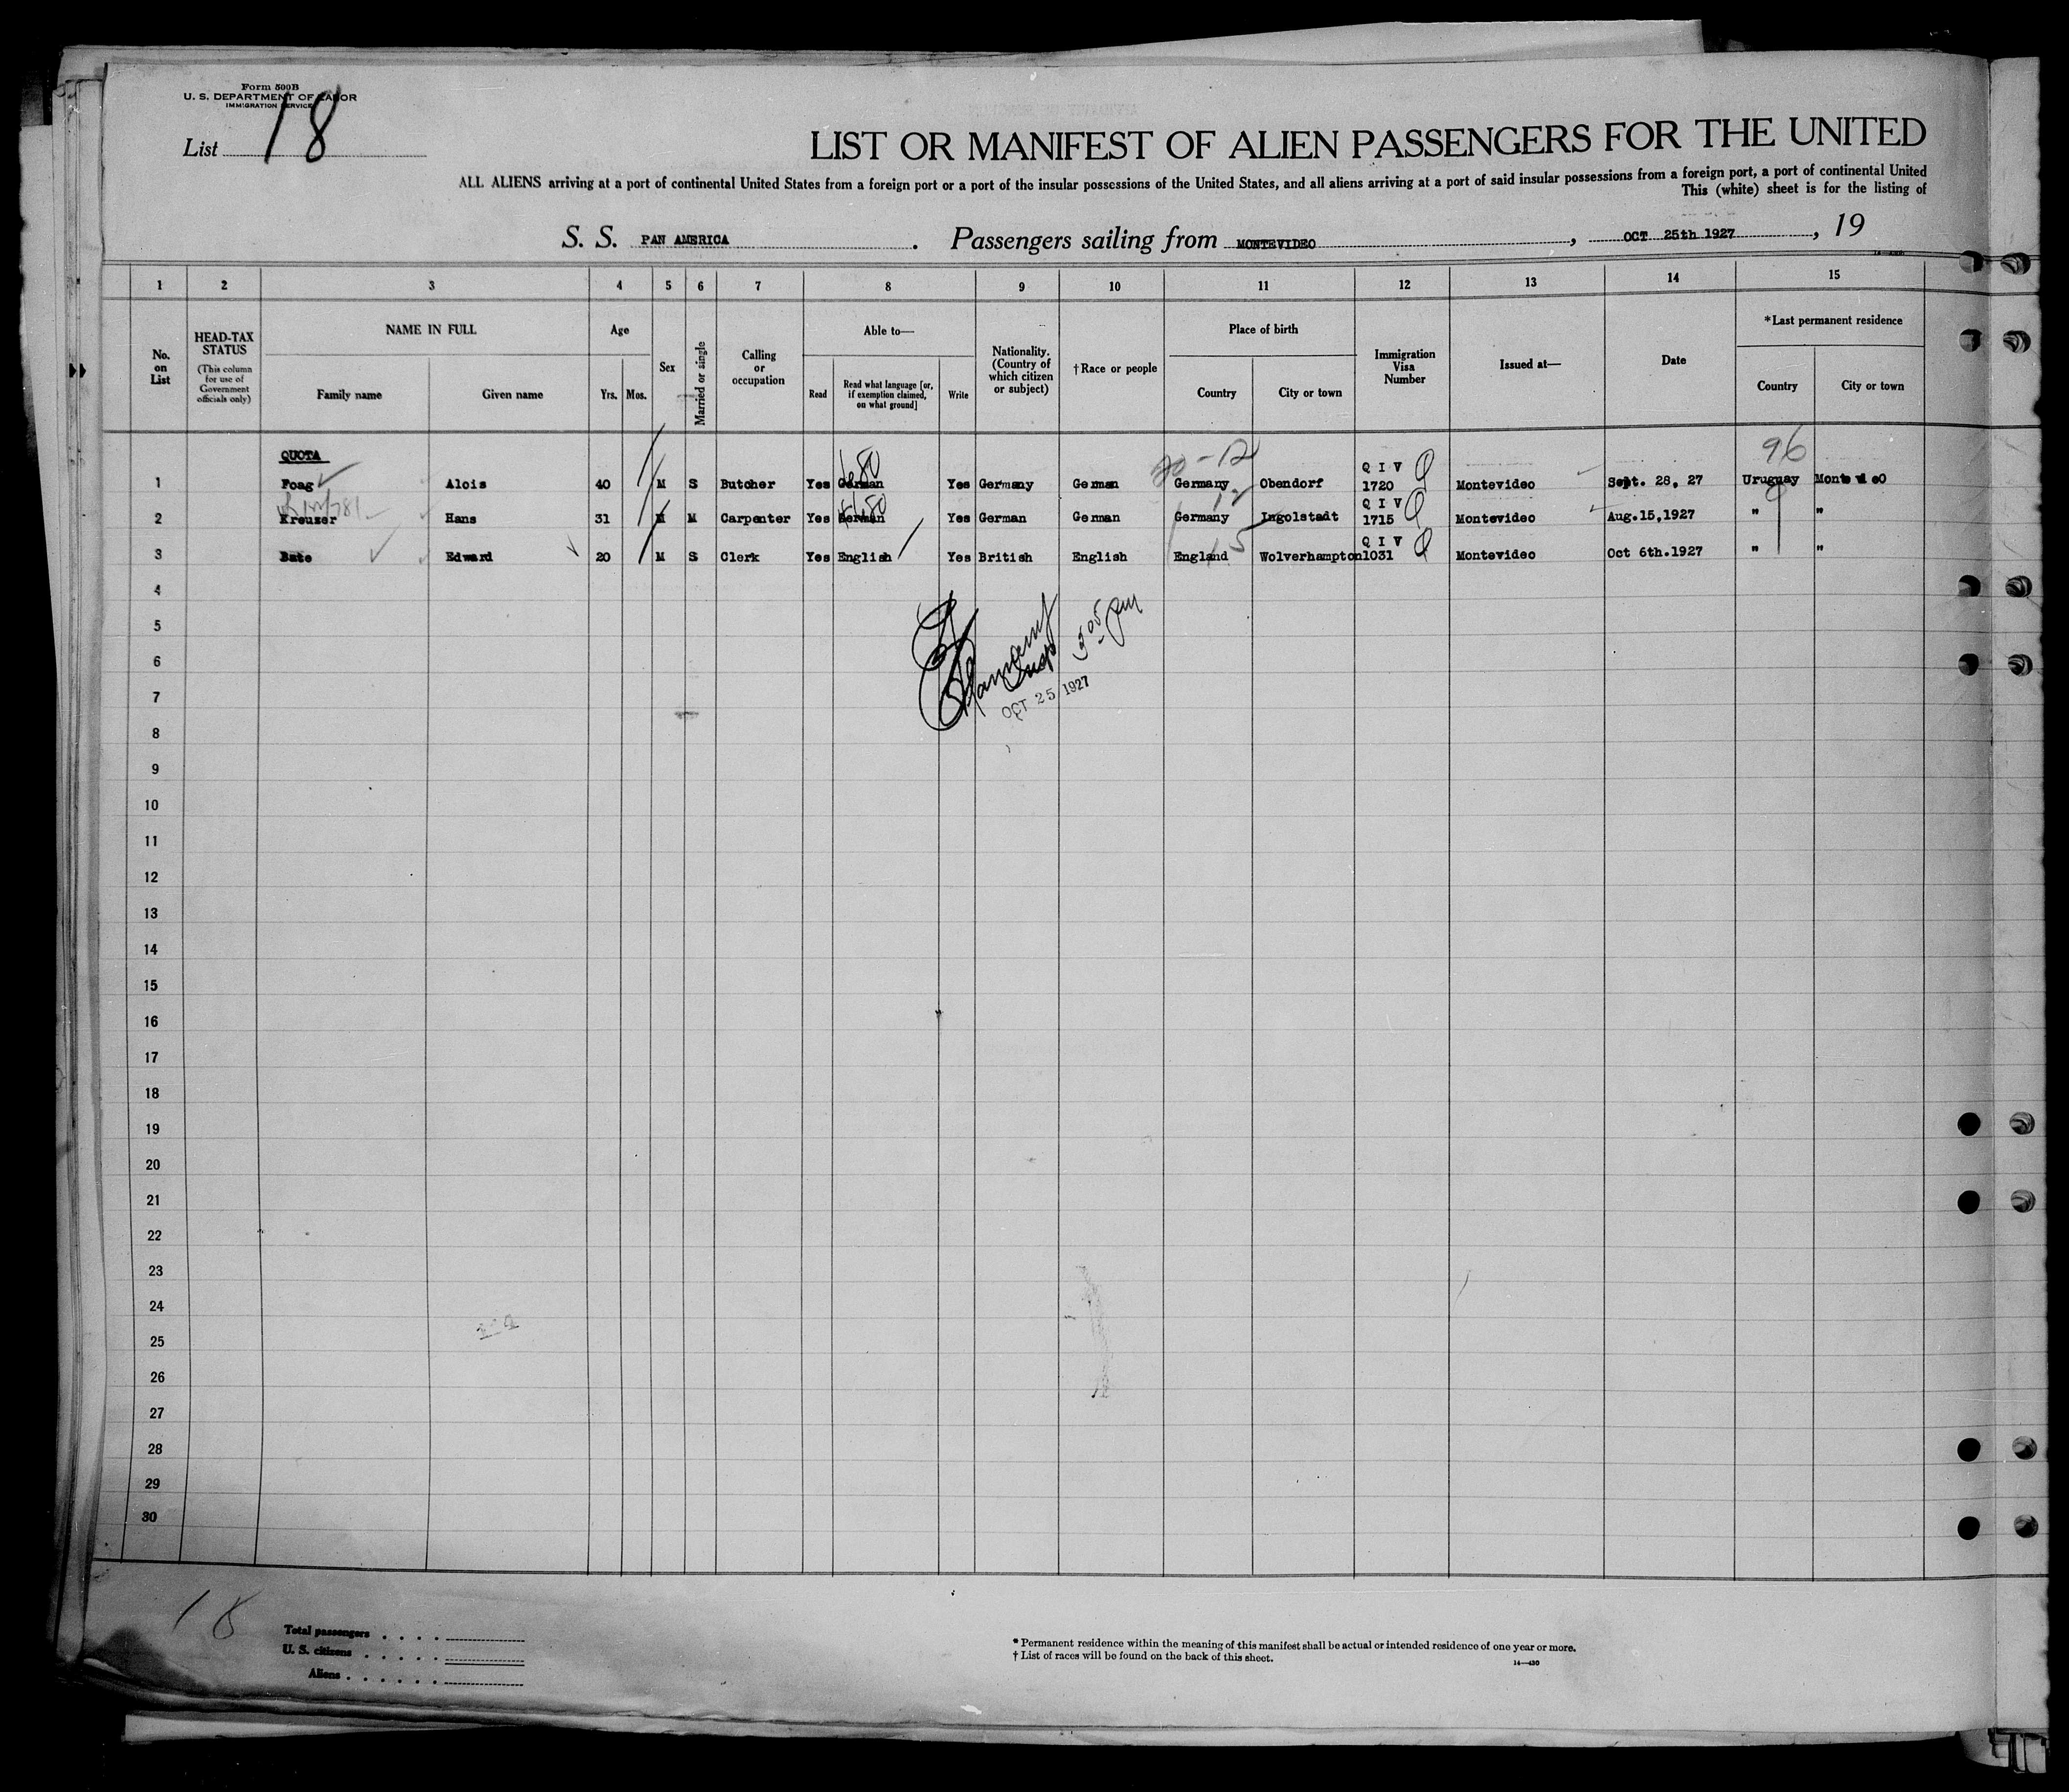 Form 500B
U. S. DEPARTMENT OF LABOR
IMMIGRATION SERVICE
List 18
LIST OR MANIFEST OF ALIEN PASSENGERS FOR THE UNITED
ALL ALIENS arriving at a port of continental United States from a foreign port or a port of the insular possessions of the United States, and all aliens arriving at a port of said insular possessions from a foreign port, a port of continental United
This (white) sheet is for the listing of
S. S. PAN AMERICA . Passengers sailing from MONTEVIDEO , OCT 25th 1927 , 19
1 2 3 4 5 6 7 8 9 10 11 12 13 14 15
No. on List
HEAD-TAX STATUS (This column for use of Government officials only)
NAME IN FULL Family name Given name
Age Yrs. Mos.
Sex
Married or single
Calling or occupation
Able to— Read Read what language [or, if exemption claimed, on what ground] Write
Nationality. (Country of which citizen or subject)
†Race or people
Place of birth Country City or town
Immigration Visa Number
Issued at—
Date
*Last permanent residence Country City or town
QUOTA 680 20-12 96
1 Foag Alois 40 M S Butcher Yes German Yes Germany German Germany Obendorf Q I V 1720 Q Montevideo Sept. 28, 27 Uruguay Monte vi eO
2 Kreuzer Hans 31 M M Carpenter Yes German Yes German German Germany Ingolstadt Q I V 1715 Q Montevideo Aug.15,1927 " "
3 Bate Edward 20 M S Clerk Yes English Yes British English England Wolverhampton Q I V 1031 Q Montevideo Oct 6th.1927 " "
4
5
Insp 3 05 pm
6
7 OCT 25 1927
8
9
10
11
12
13
14
15
16
17
18
19
20
21
22
23
24
25
26
27
28
29
30
18
Total passengers . . . .
U. S. citizens . . . . .
Aliens . . . . . .
* Permanent residence within the meaning of this manifest shall be actual or intended residence of one year or more.
† List of races will be found on the back of this sheet.
14—430